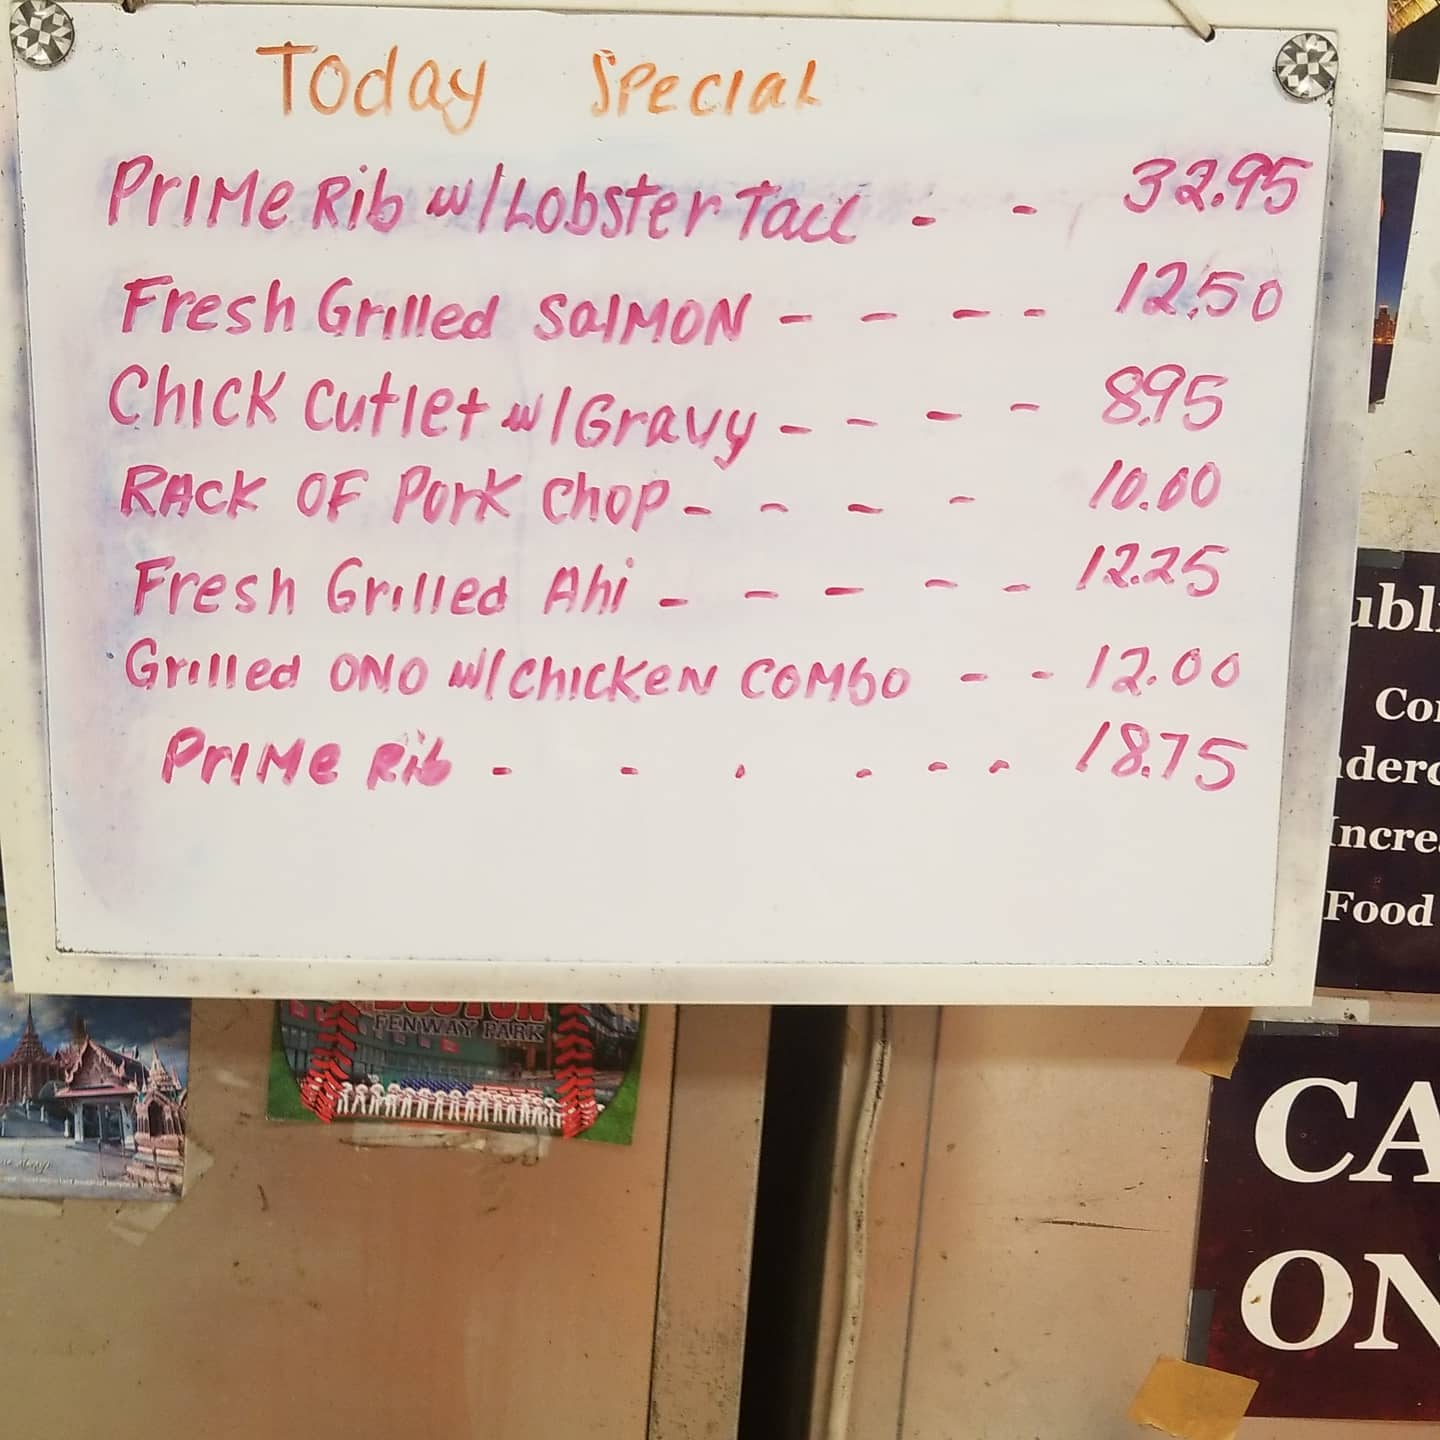 Today Special
Prime Rib w/Lobster Tail - - 32.95
Fresh Grilled Salmon - - - - 12.50
Chick Cutlet w/Gravy - - - - 8.95
Rack OF Pork Chop - - - - 10.00
Fresh Grilled Ahi - - - - - 12.25
Grilled ONO w/Chicken COMBO - - 12.00
Prime Rib - - - - - - 18.75
Food
FENWAY PARK
CA
ON